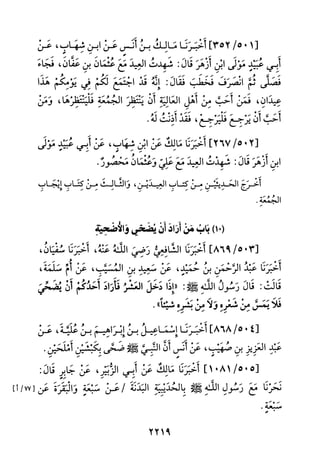 [٣٥٢/٥٠١] أَخْبَـرَنَـا مَـالِـكُ بـنُ أَنَـسٍ عَـنْ ابـنِ شِـهَـابٍ، عَـنْ
أَبِـي عُبَيْدٍ مَوْلَى ابْنِ أَزْهَرَ قَالَ: شَهِدتُ العِيدَ مَعَ عُثْمَانَ بنِ عَفَّانَ، فَجَاءَ
فَصَلَّى ثُمَّ انْصَرَفَ فَخَطَبَ فَقَالَ: إِنَّهُ قَدْ اجْتَمَعَ لَكُمْ فِي يَوْمِكُمْ هَذَا
عِيدَانِ، فَمَنْ أَحَبَّ مِنْ أَهْلِ العَالِيَةِ أَنْ يَنْتَظِرَ الجُمُعَةَ فَلْيَنْتَظِرْهَا، وَمَنْ
أَحَبَّ أَنْ يَرْجِـعَ فَلْيَرْجِـعْ، فَقَدْ أَذِنْتُ لَهُ.
[٢٦٧/٥٠٢] أَخْبَرَنَا مَالِكٌ عَنْ ابْنِ شِهَابٍ، عَنْ أَبِـي عُبَيْدٍ مَوْلَى
ابنِ أَزْهَرَ قَالَ: شَهِدْتُ العِيدَ مَعَ عَلِيٍّ وَعُثْمَانُ مَحْصُورٌ.
أَخـرَجَ الحَـدِيـثَيْـنِ مِـنْ كِتـابِ العِيـدَيْـنِ، وَالثَّـالِـثَ مِـنْ كِتَـابِ إِيْجَـابِ
الجُمُعَةِ.
(١٠) بَابُ مَنْ أَرَادَ أَنْ يُضَحِّيَ وَالأُضْحِيَةِ
[٨٦٩/٥٠٣] أَخْبَرَنَا الشَّافِعِيُّ رَضِيَ اللَّهُ عَنْهُ، أَخْبَرَنَا سُفْيَانُ،
أَخْبَرَنَا عَبْدُ الرَّحْمَنِ بنُ حُمَيْدٍ، عَنْ سَعِيدِ بنِ المُسَيَّبِ، عَنْ أُمِّ سَلَمَةَ،
قَالَتْ: قَالَ رَسُولُ اللَّهِ ﷺ: «إِذَا دَخَلَ العَشْرُ فَأَرَادَ أَحَدُكُمْ أَنْ يُضَحِّيَ
فَلَا يَمَسَّ مِنْ شَعْرِهِ وَلَا مِنْ بَشَرِهِ شَيْئاً».
[٨٦٨/٥٠٤] أَخْبَـرَنَـا إِسْمَـاعِيـلُ بـنُ إِبْـرَاهِيـمَ بـنُ عُلَيَّـةَ، عَـنْ
عَبْدِ العَزِيزِ بنِ صُهَيْبٍ، عَنْ أَنَسٍ أَنَّ النَّبِـيَّ ﷺ ضَحَّى بِكَبْشَيْنِ أَمْلَحَيْنِ.
[١٠٨١/٥٠٥] أَخْبَرَنَا مَالِكٌ عَنْ أَبِـي الزُّبَيْرِ، عَنْ جَابِرٍ قَالَ:
نَحَرْنَا مَعَ رَسُولِ اللَّهِ ﷺ بِالحُدَيْبِيَةِ البَدَنَةَ / عَـنْ سَبْعَةٍ وَالبَقَرَةَ عَن [٧٧/أ]
سَبْعَةٍ.
٢٢١٩